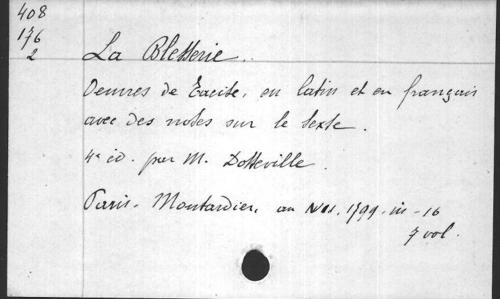 408
176
2
La Bletterie.
Oeuvres de Tacite, en latin et en français
avec des notes sur le texte.
4e éd. par M. Dotteville.
Paris. Moutardier, an VII. 1799. in-16
7 vol.